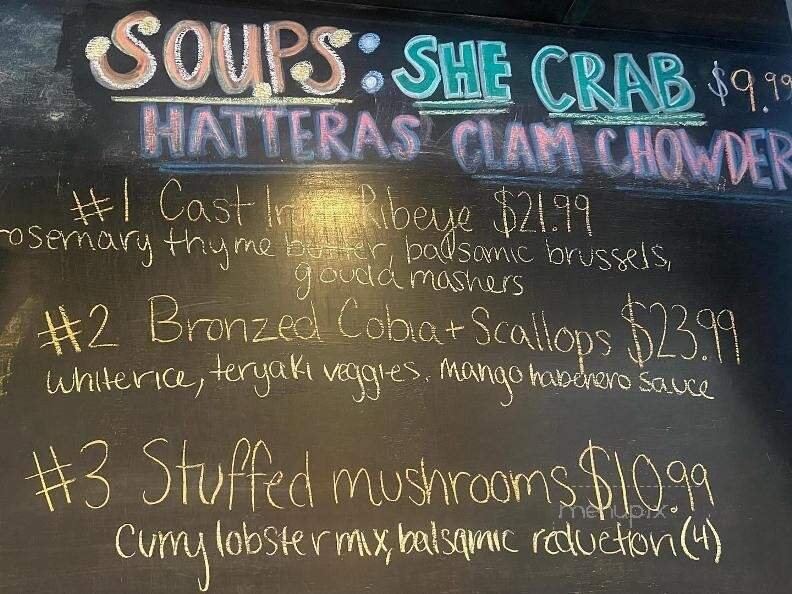 SOUPS: SHE CRAB $9.99
HATTERAS CLAM CHOWDER
#1 Cast Iron Ribeye $21.99
rosemary thyme butter, balsamic brussels,
gouda mashers
#2 Bronzed Cobia + Scallops $23.99
white rice, teryaki veggies, mango habenero sauce
#3 Stuffed mushrooms $10.99
menupix
curry lobster mix, balsamic reduction (4)